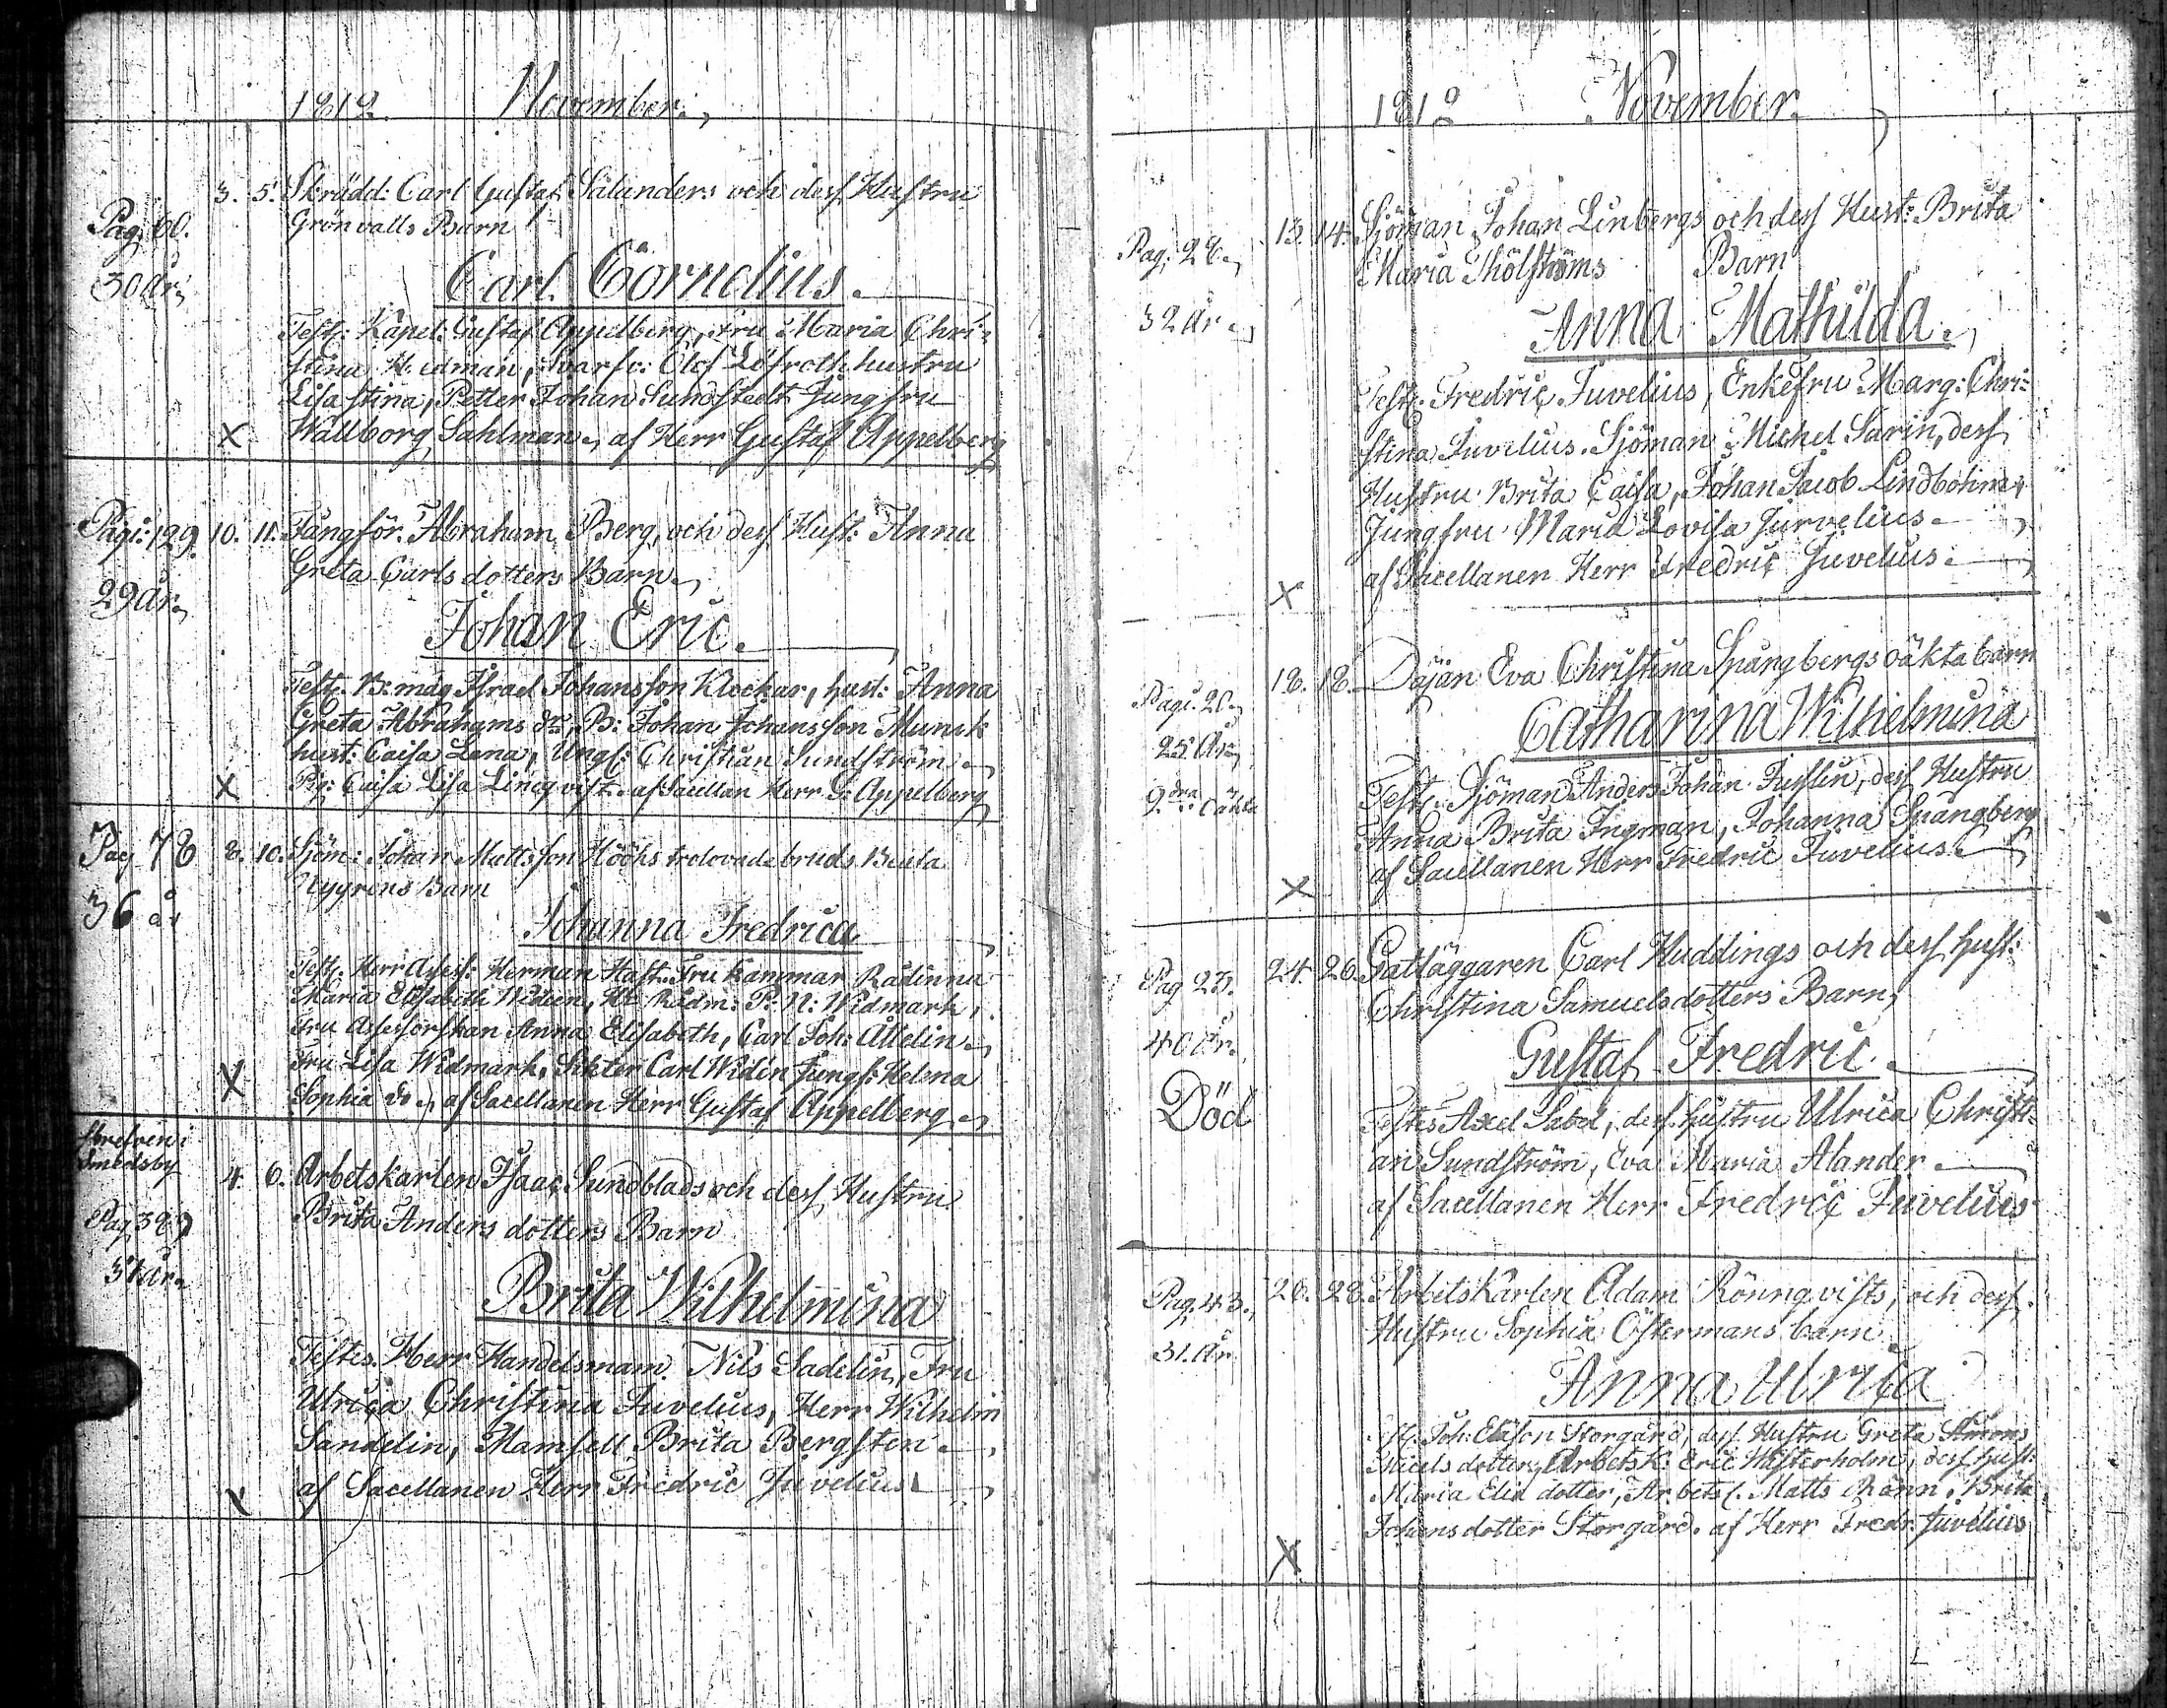 1812. November.
3. 5. Skrädd: Carl Gustaf Sälanders och dess Hustru
Pag. 60. Grönvalls Barn
30 år. Carl Cornelius.
Test: Kapel: Gustaf Appelberg, Fru Maria Chri-
stina Hedman, Svarfv: Olof Löfroth hustru
Lisa Stina, Petter Johan Sundstedt Jungfru
x Wallborg Sahlman, af Herr Gustaf Appelberg
Pag: 129. 10. 11. Fångför. Abraham Berg, och dess Hust: Anna
29 år. Greta Carlsdotters Barn
Johan Eric.
Test: B: måg Israel Johansson Klockar, hust: Anna
Greta Abrahams dr, B: Johan Johansson Munck
hust: Caisa Lena, Ungf: Christian Sundström
x Pig: Caisa Lisa Lindqvist. af Sacellan Herr G: Appelberg
Pag 78 8. 10. Sjöm: Johan Mattsson Hööks trolovade bruds Beata
36 år Nygrens Barn
Johanna Fredrica
Test: Herr Assess: Herman Hast. Fru Kammar Rådinna
Maria Elisabeth Wideen, Hr Rådm: P: N: Widmark,
Fru Assessorskan Anna Elisabeth, Carl Joh: Allelin
Fru Lisa Widmark, Sikter Carl Widén Jungf: Helena
X Sophia do af Sacellanen Herr Gustaf Appelberg
Smedsby
4. 6. Arbetskarlen Isaac Sundblads och dess Hustru
Pag 389 Brita Anders dotters Barn
31 år.
Brita Wilhelmina
Testes. Herr Handelsmam. Nils Sadelin, Fru
Ulrica Christina Juvelius, Herr Wilhelm
Sandelin, Mamsell Brita Bergsten
x af Sacellanen Herr Fredric Juvelius
1812 November.
13. 14. Sjöman Johan Linbergs och dess Hust: Brita
Pag. 28. Maria Thölströms Barn
32 år. Anna Mathilda.
Test: Fredric Juvelius, Enkefru Marg: Chri-
stina Juvelius. Sjöman Michel Sarin, dess
Hustru Brita Caisa, Johan Jacob Lindbohm,
Jungfru Maria Lovisa Jurvelius
x af Sacellanen Herr Fredric Juvelius.
18. 18. Dejan Eva Christina Spångbergs oäkta barn
Pag: 20. Catharina Wilhelmina
25 år
9. dra oäkta Test: Sjöman Anders Johan Fusslin, dess Hustru
Anna Brita Ingman, Johanna Spångberg
x af Sacellanen Herr Fredric Juvelius
Pag 23. 24. 26. Gatläggaren Carl Huddings och dess hust:
Christina Samuelsdotters Barn
40 år. Gustaf Fredric.
Död Testes Axel Sabel, dess hustru Ulrica Christi-
an Sundström, Eva Maria Alander
af Sacellanen Herr Fredric Juvelius
Pag. 43. 26. 28. Arbetskarlen Adam Rönnqvists, och dess
Hustru Sophia Östermans barn
31. år Anna Ulrica
Test: Joh: Eliason Storgård, dess Hustru Greta Simons
Micels dotter, Arbetsk: Eric Wästerholm, dess hust:
Maria Elia dotter, Arbetsk. Matts Rönn, Brita
Johans dotter Storgård. af Herr Fredr: Juvelius
X